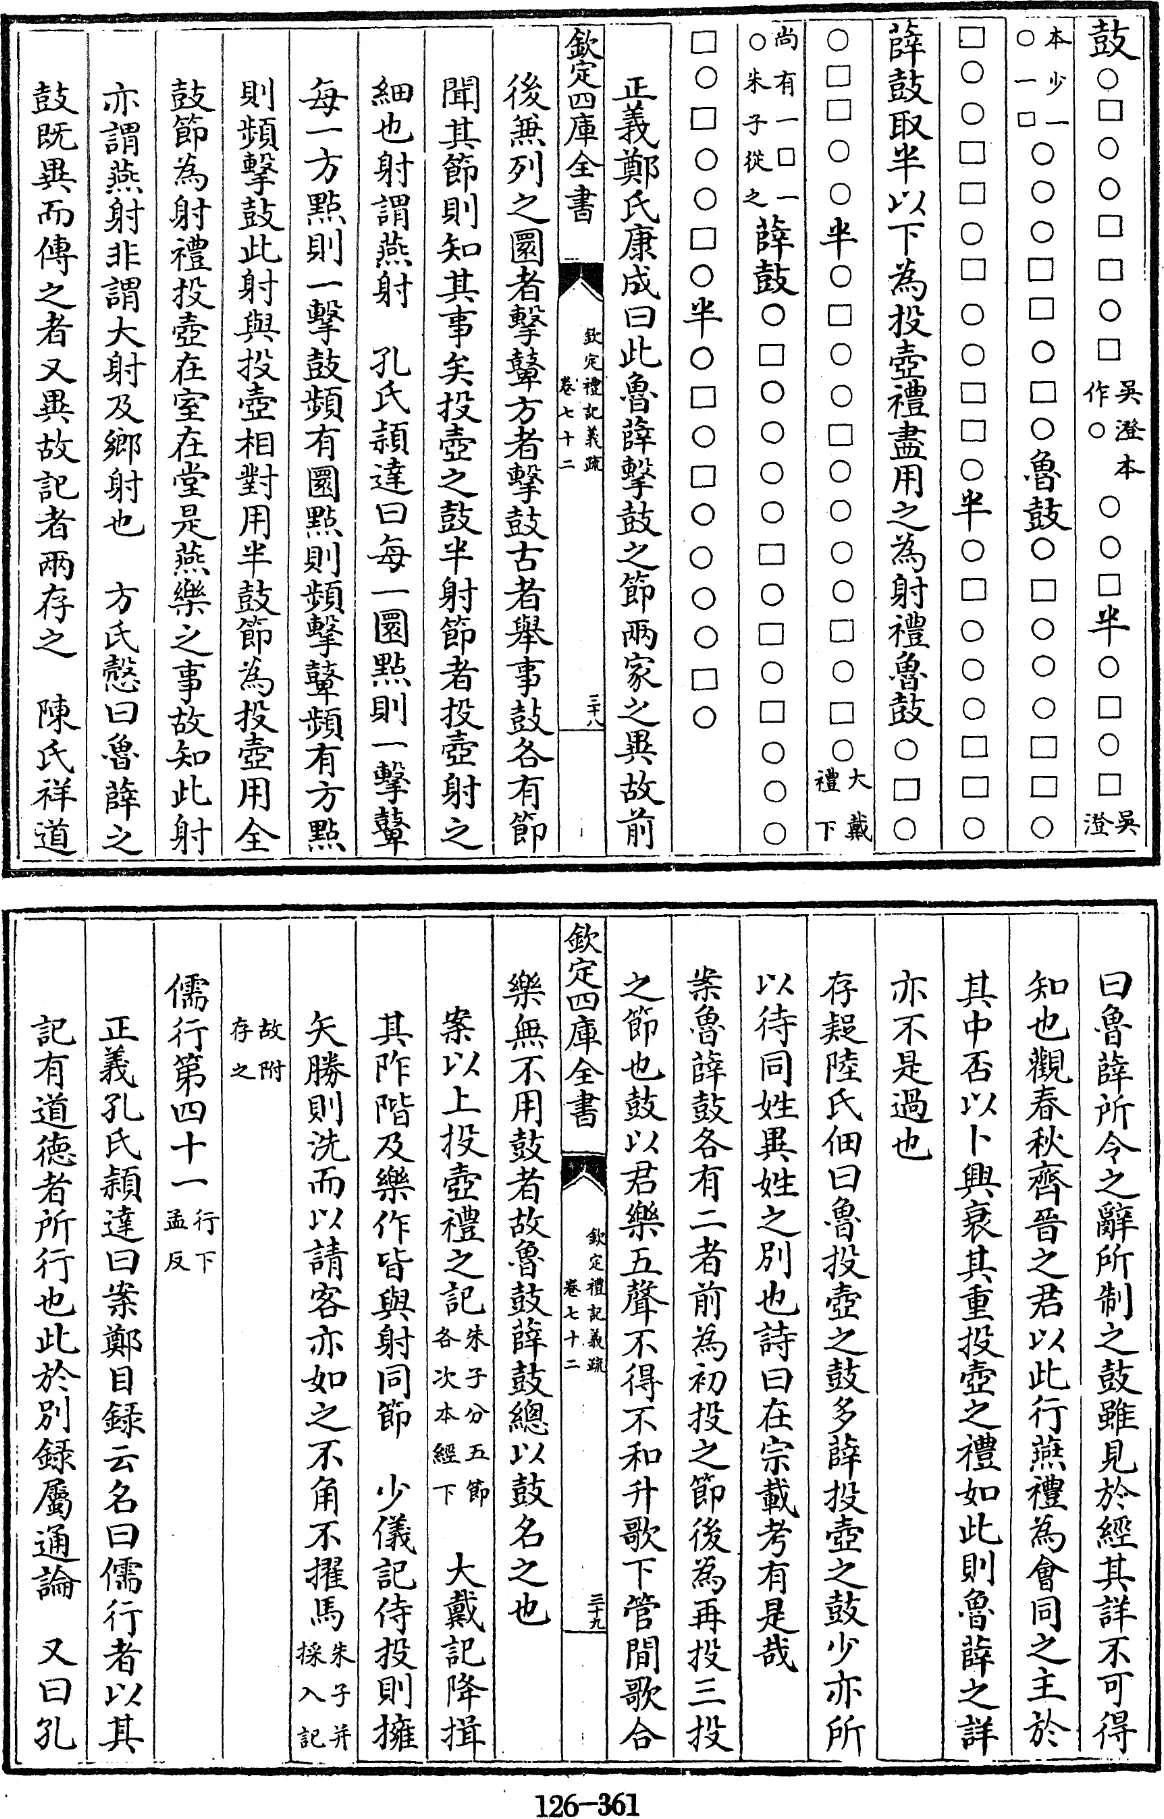 鼓○□○○□□○□吳澄本作○○○□半○□○□吳澄
本少一○一□○○○□□○□○魯鼓○□○○○□□○
□○○□□○□○○□□○半○□○○○□□○
薛鼓取半以下為投壺禮盡用之為射禮魯鼓○□○
○□□○○半○□○○□○○○○□○□○大戴禮下
尚有一□一○朱子從之薛鼓○□○○○○□○□○□○○○
□○□○○□○半○□○□○○○○□○
正義鄭氏康成曰此魯薛擊鼓之節兩家之異故前
欽定四庫全書 欽定禮記義疏 卷七十二 三十八
後兼列之圜者擊鼙方者擊鼓古者舉事鼓各有節
聞其節則知其事矣投壺之鼓半射節者投壺射之
細也射謂燕射 孔氏穎達曰每一圜點則一擊鼙
每一方點則一擊鼓頻有圜點則頻擊鼙頻有方點
則頻擊鼓此射與投壺相對用半鼓節為投壺用全
鼓節為射禮投壺在室在堂是燕樂之事故知此射
亦謂燕射非謂大射及鄉射也 方氏慤曰魯薛之
鼓既異而傳之者又異故記者兩存之 陳氏祥道
曰魯薛所令之辭所制之鼓雖見於經其詳不可得
知也觀春秋齊晉之君以此行燕禮為會同之主於
其中否以卜興衰其重投壺之禮如此則魯薛之詳
亦不是過也
存疑陸氏佃曰魯投壺之鼓多薛投壺之鼓少亦所
以待同姓異姓之別也詩曰在宗載考有是哉
案魯薛鼓各有二者前為初投之節後為再投三投
之節也鼓以君樂五聲不得不和升歌下管間歌合
欽定四庫全書 欽定禮記義疏 卷七十二 三十九
樂無不用鼓者故魯鼓薛鼓總以鼓名之也
案以上投壺禮之記朱子分五節各次本經下 大戴記降揖
其阼階及樂作皆與射同節 少儀記侍投則擁
矢勝則洗而以請客亦如之不角不擢馬朱子并採入記
故附存之
儒行第四十一行下孟反
正義孔氏穎達曰案鄭目録云名曰儒行者以其
記有道德者所行也此於別録屬通論 又曰孔
126-361